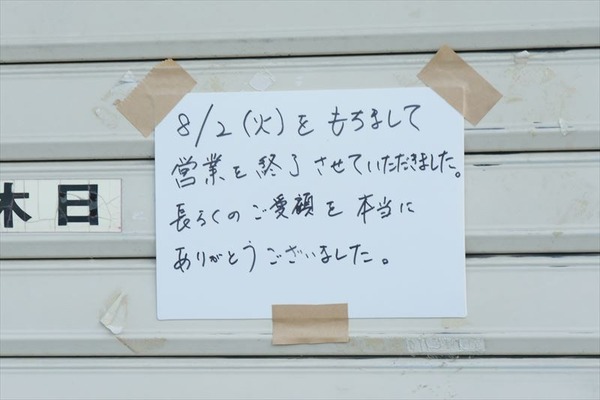 8/2(火)をもちまして
営業を終了させていただきました。
長らくのご愛顧を本当に
ありがとうございました。
休日